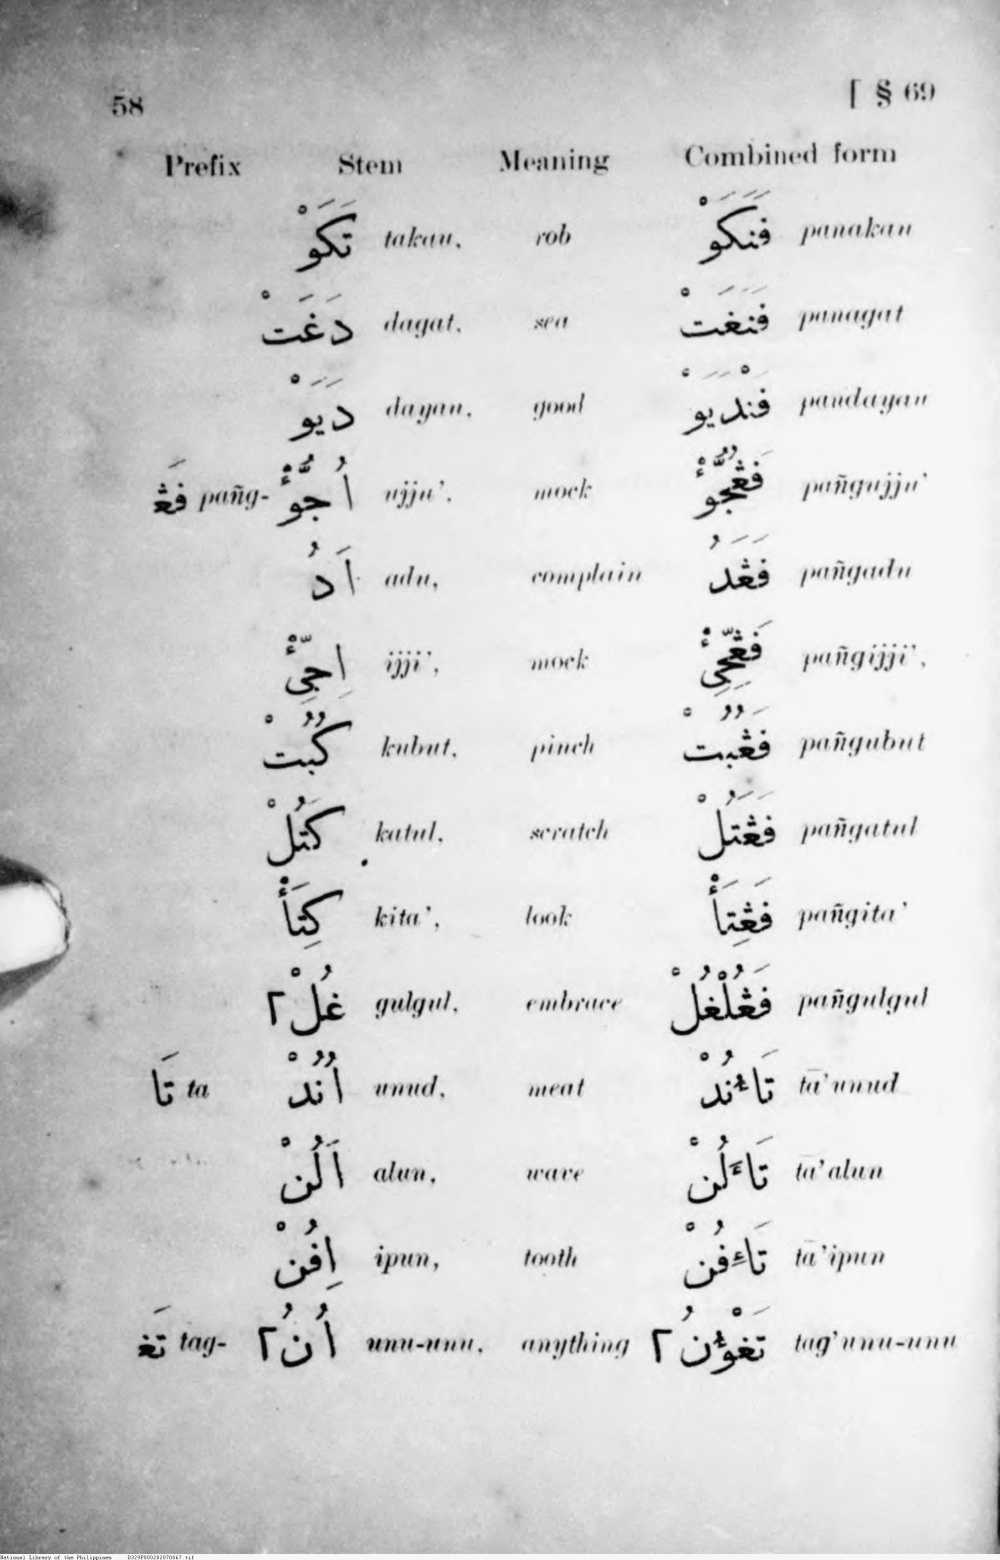 58 [ § 69
Prefix Stem Meaning Combined form
تَكَوْ takau, rob فَنَكَوْ panakau
دَغَتْ dagat, sea فَنَغَتْ panagat
دَيَوْ dayau, good فَنْدَيَوْ pandayau
فَڠ pañg- اُجُّوْء ujju’, mock فَڠُجُّوْء pañgujju’
اَدُ adu, complain فَڠَدُ pañgadu
اِجِّيْء ijji’, mock فَڠِجِّيْء pañgijji’,
كُبُتْ kubut, pinch فَڠُبُتْ pañgubut
كَتُلْ katul, scratch فَڠَتُلْ pañgatul
كِتَأْ kita’, look فَڠِتَأْ pañgita’
غُلْ٢ gulgul, embrace فَڠُلْغُلْ pañgulgul
تَا ta اُنُدْ unud, meat تَاءُنُدْ tā’unud
اَلُنْ alun, wave تَاءَلُنْ tā’alun
اِفُنْ ipun, tooth تَاءِفُنْ tā’ipun
تَغ tag- اُنُ٢ unu-unu, anything تَغْؤُنُ٢ tag’unu-unu
National Library of the Philippines